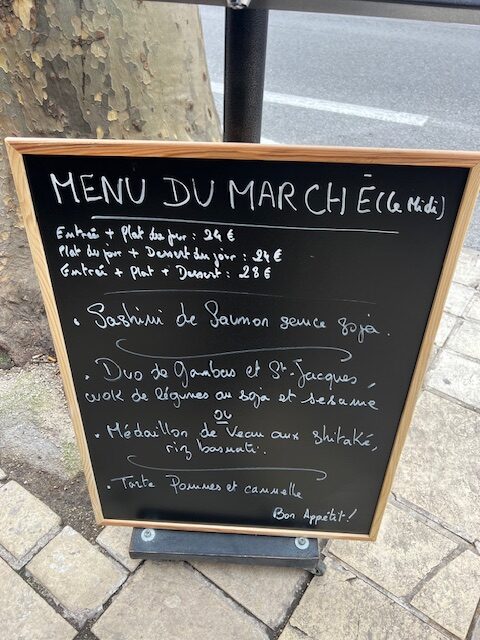 MENU DU MARCHÉ (Le Midi)
Entrée + Plat du jour : 24 €
Plat du jour + Dessert du jour : 24 €
Entrée + Plat + Dessert : 28 €
• Sashimi de Saumon sauce soja.
• Duo de Gambas et St-Jacques,
wok de légumes au soja et sesame
ou
• Médaillon de Veau aux shitaké,
riz basmati.
• Tarte Pommes et cannelle
Bon Appétit !